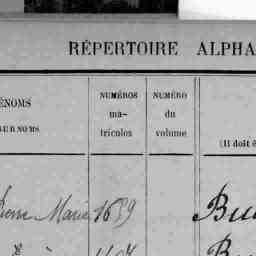 RÉPERTOIRE ALPHA
ÉNOMS
SURNOMS
NUMÉROS
ma-
tricules
NUMÉRO
du
volume
(Il doit ê
Pierre Marie 1659
Bu